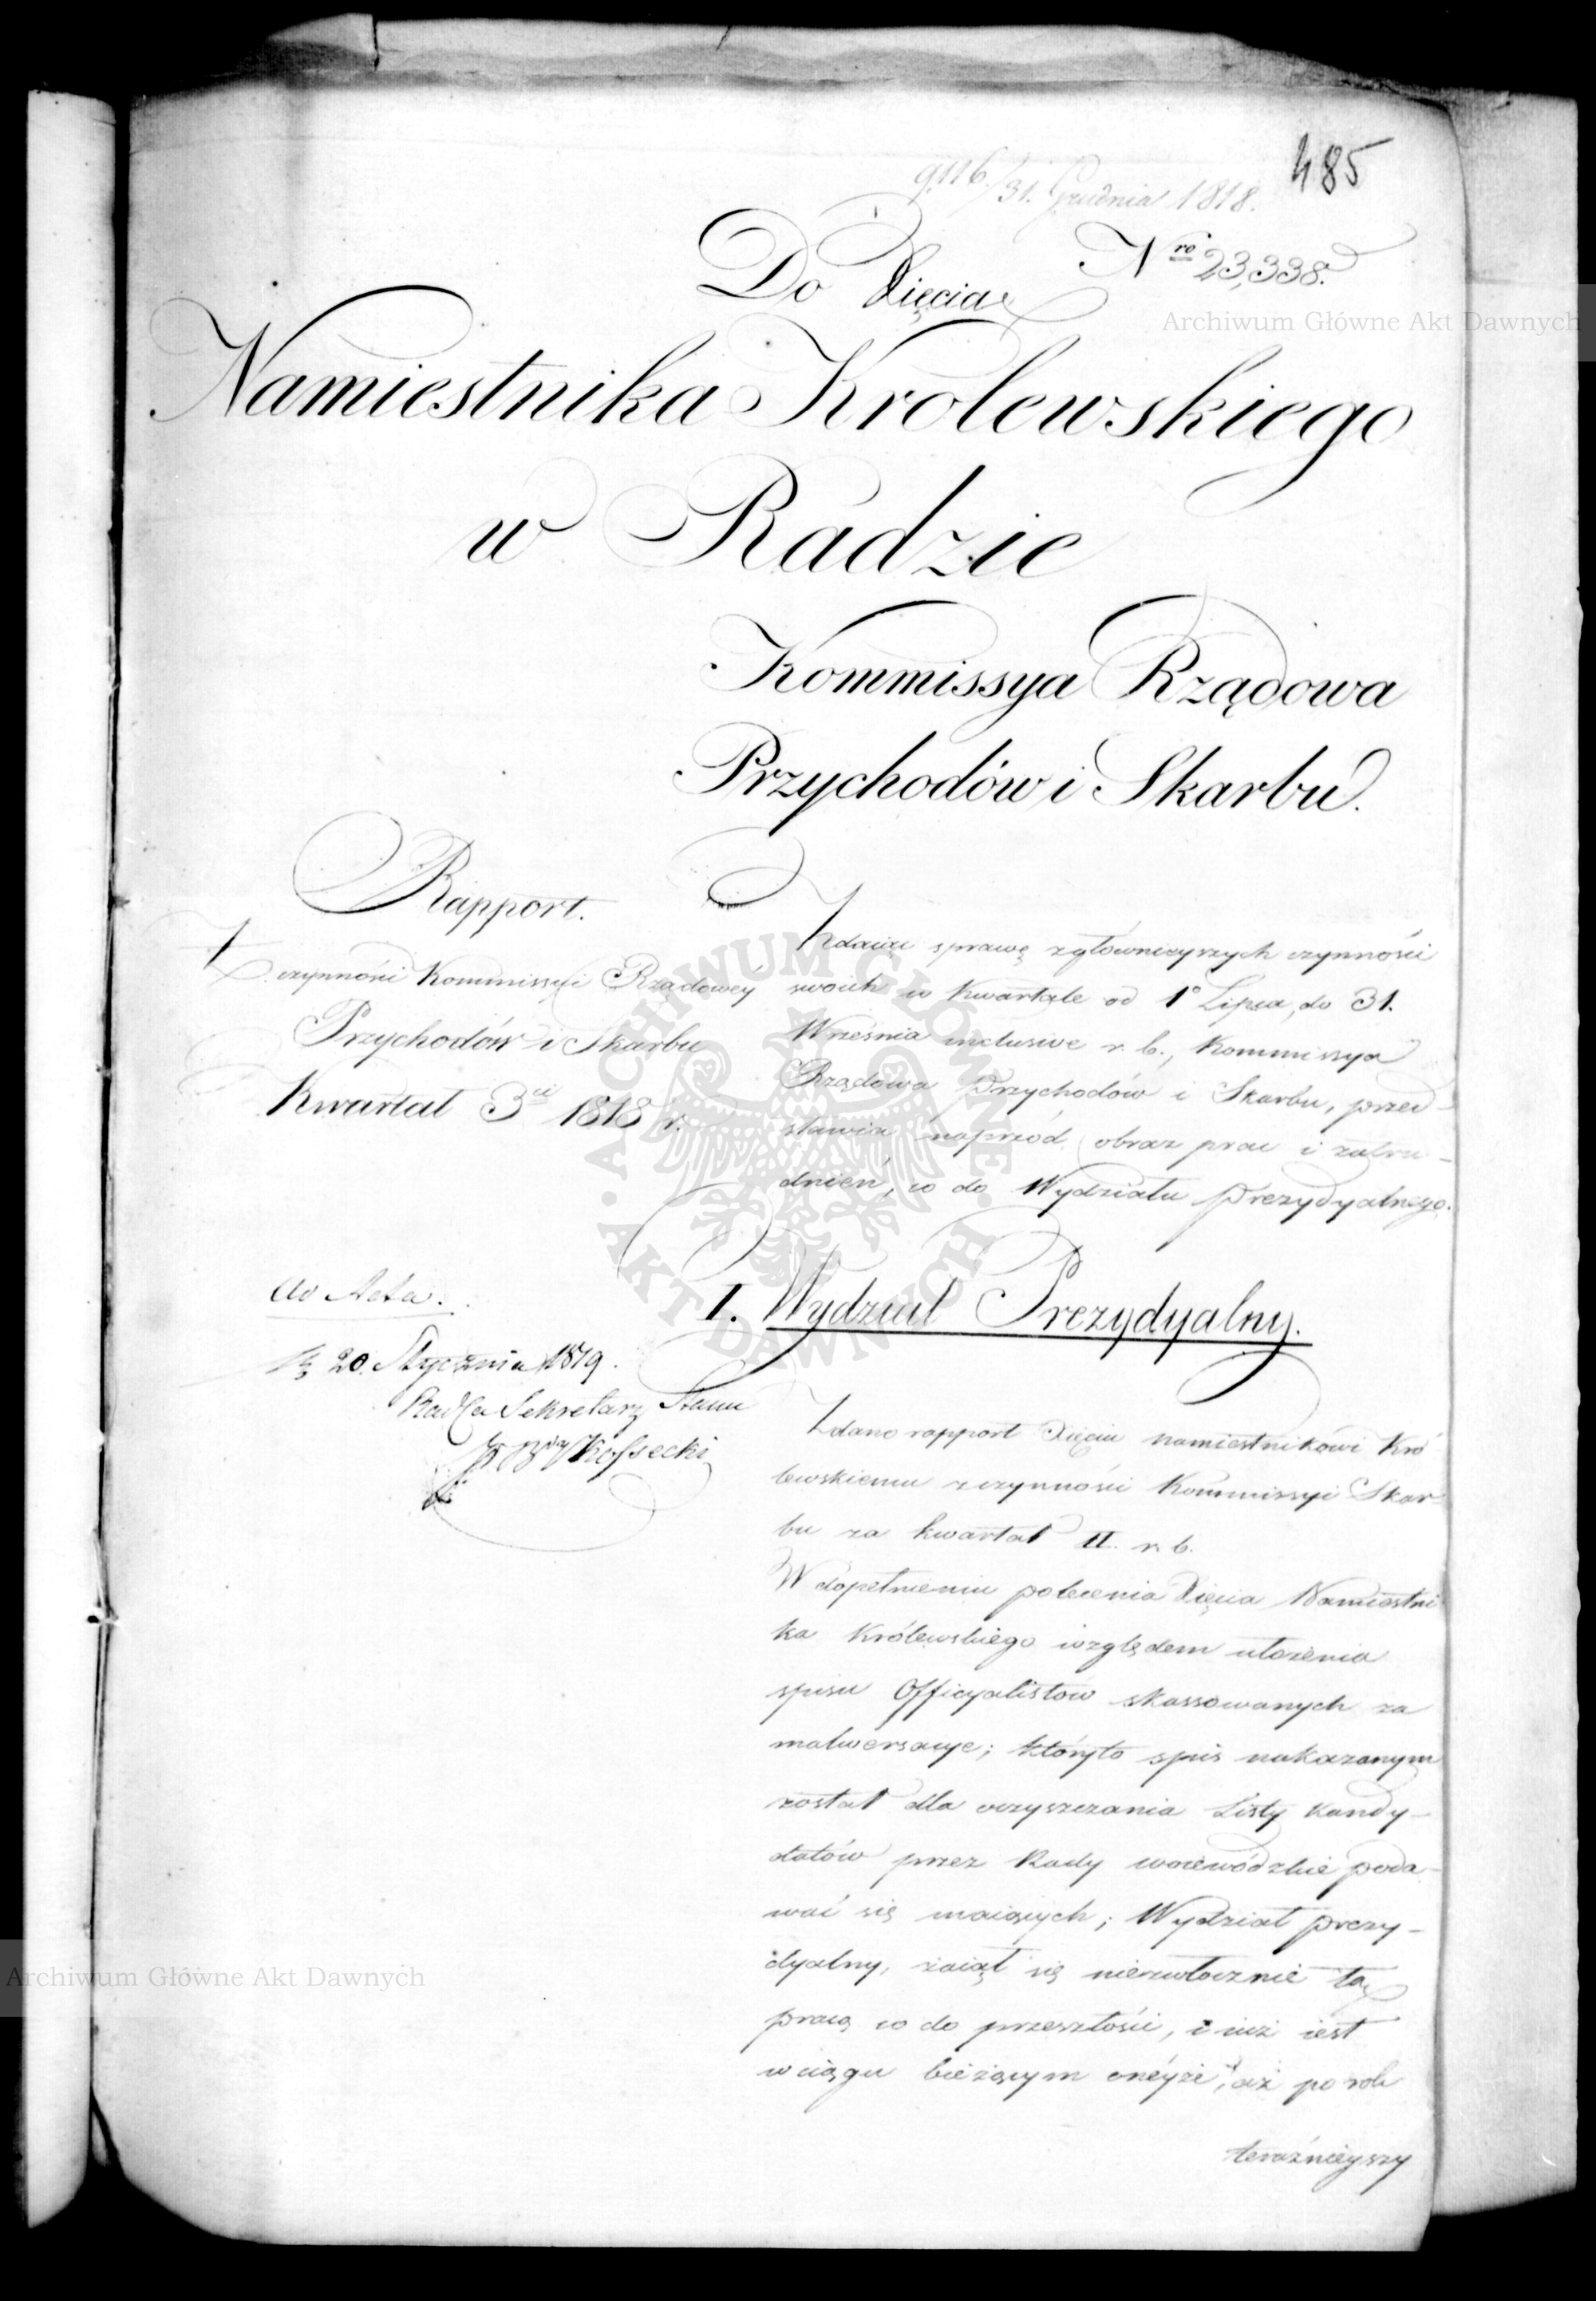 485
9116/31. Grudnia 1818.
Nro 23,338.
Do Xięcia
Namiestnika Krolewskiego
w Radzie
Kommissya Rządowa
Przychodów i Skarbu.
Rapport.
Z czynności Kommissyi Rządowéy
Przychodów i Skarbu
Kwartał 3ci 1818 r.
Zdaiąc sprawę z głównieyszych czynności
swoich w Kwartale od 1o Lipca, do 31.
Września inclusive r. b., Kommissya
Rządowa Przychodów i Skarbu, przed-
stawia naprzód obraz prac i zatru-
dnień, co do Wydziału Prezydyalnego.
ad Acta.
20. Stycznia 1819.
Radca Sekretarz Stanu
Kossecki
I. Wydział Prezydyalny.
Zdano rapport Xięciu Namiestnikowi Kró
lewskiemu z czynności Kommissyi Skar-
bu za kwartał II. r. b.
W dopełnieniu polecenia Xięcia Namiestni
ka Królewskiego względem ułożenia
spisu Officyalistów skassowanych za
malwersacye; któryto spis nakazanym
został dla oczyszczania Listy Kandy-
datów przez Rady woiewódzkie poda-
wać się maiących; Wydział prezy-
dyalny, zaiął się niezwłocznie tą
pracą co do przeszłości, i iuż iest
w ciągu bieżącym onéyże, aż po rok
teraźnieyszy
Archiwum Główne Akt Dawnych
Archiwum Główne Akt Dawnych
ARCHIWUM GŁÓWNE
AKT DAWNYCH